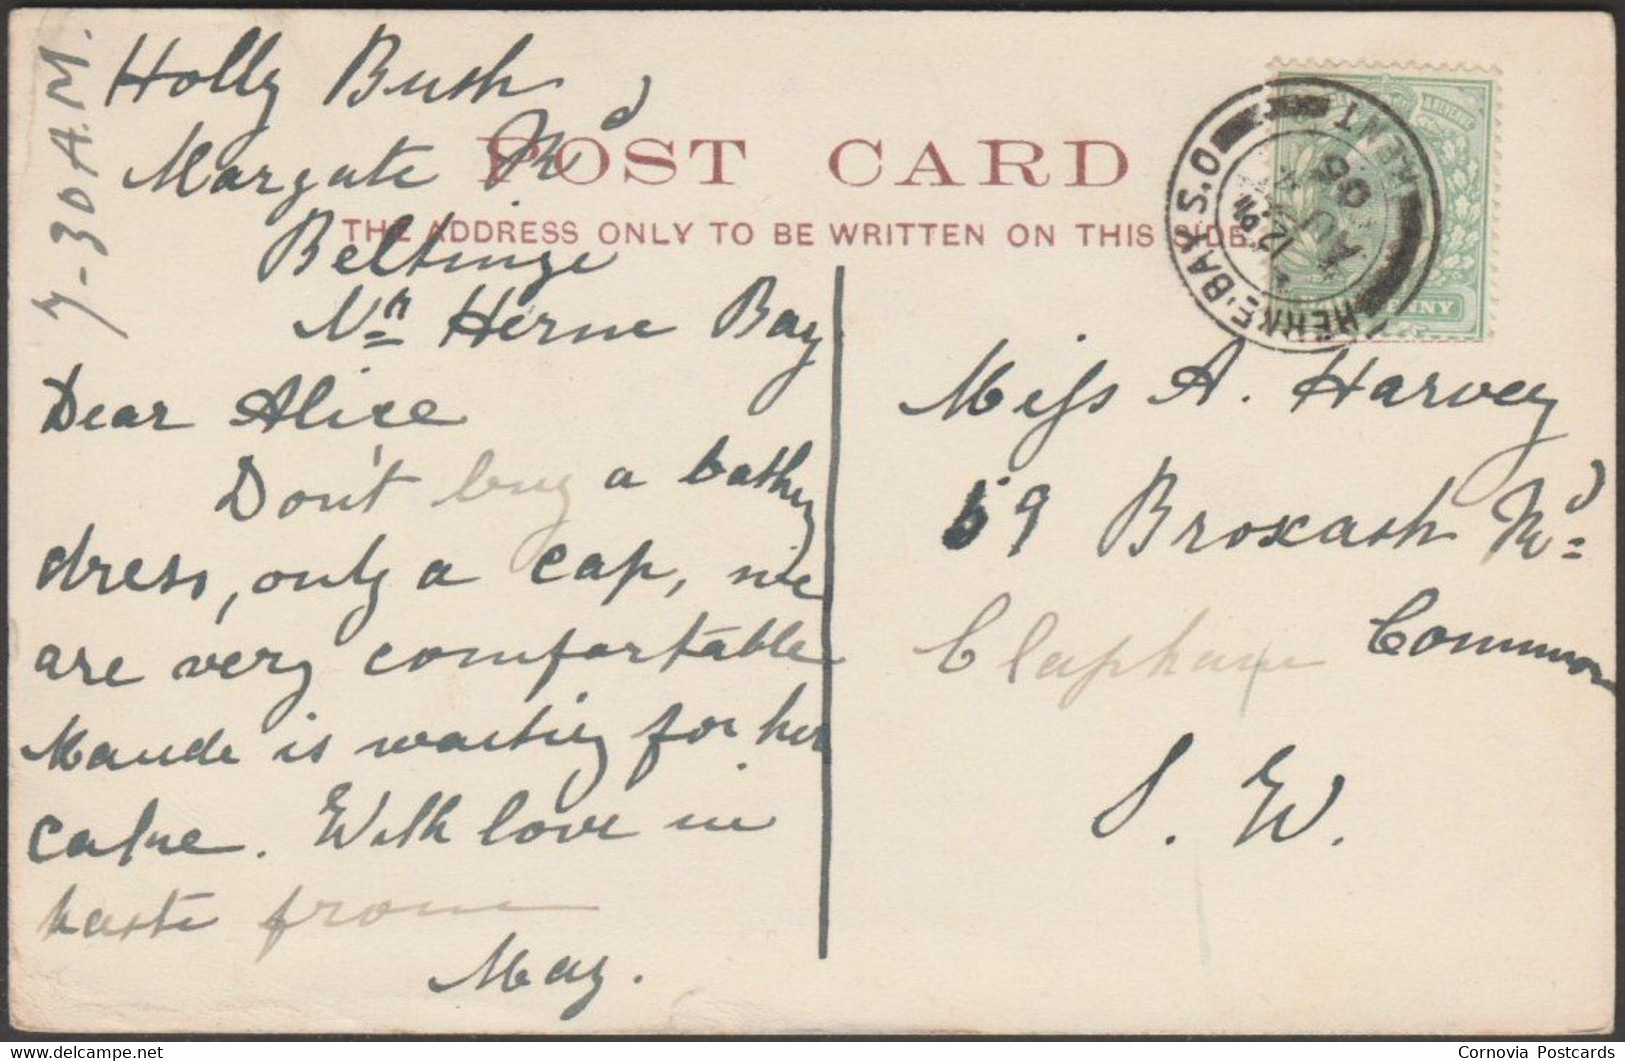 7-30 A.M.
Holly Bush
Margate Rd
Beltinge
Nr Herne Bay
POST CARD
THE ADDRESS ONLY TO BE WRITTEN ON THIS SIDE
HERNE·BAY S.O
KENT
12 PM
AU
06
Dear Alice
Don't buy a bathing
dress, only a cap, we
are very comfortable
Maude is waiting for her
calne. With love in
haste from
May.
Miss A. Harvey
59 Broxash Rd
Clapham Common
S. W.
Cornovia Postcards